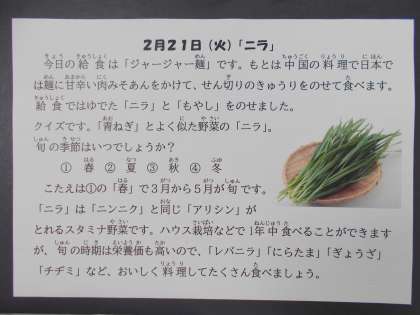 2月21日（火）「ニラ」
今日の給食は「ジャージャー麺」です。もとは中国の料理で日本で
は麺に甘辛い肉みそあんをかけて、せん切りのきゅうりをのせて食べます。
給食ではゆでた「ニラ」と「もやし」をのせました。
クイズです。「青ねぎ」とよく似た野菜の「ニラ」。
旬の季節はいつでしょうか？
① 春 ② 夏 ③ 秋 ④ 冬
こたえは①の「春」で3月から5月が旬です。
「ニラ」は「ニンニク」と同じ「アリシン」が
とれるスタミナ野菜です。ハウス栽培などで1年中食べることができます
が、旬の時期は栄養価も高いので、「レバニラ」「にらたま」「ぎょうざ」
「チヂミ」など、おいしく料理してたくさん食べましょう。